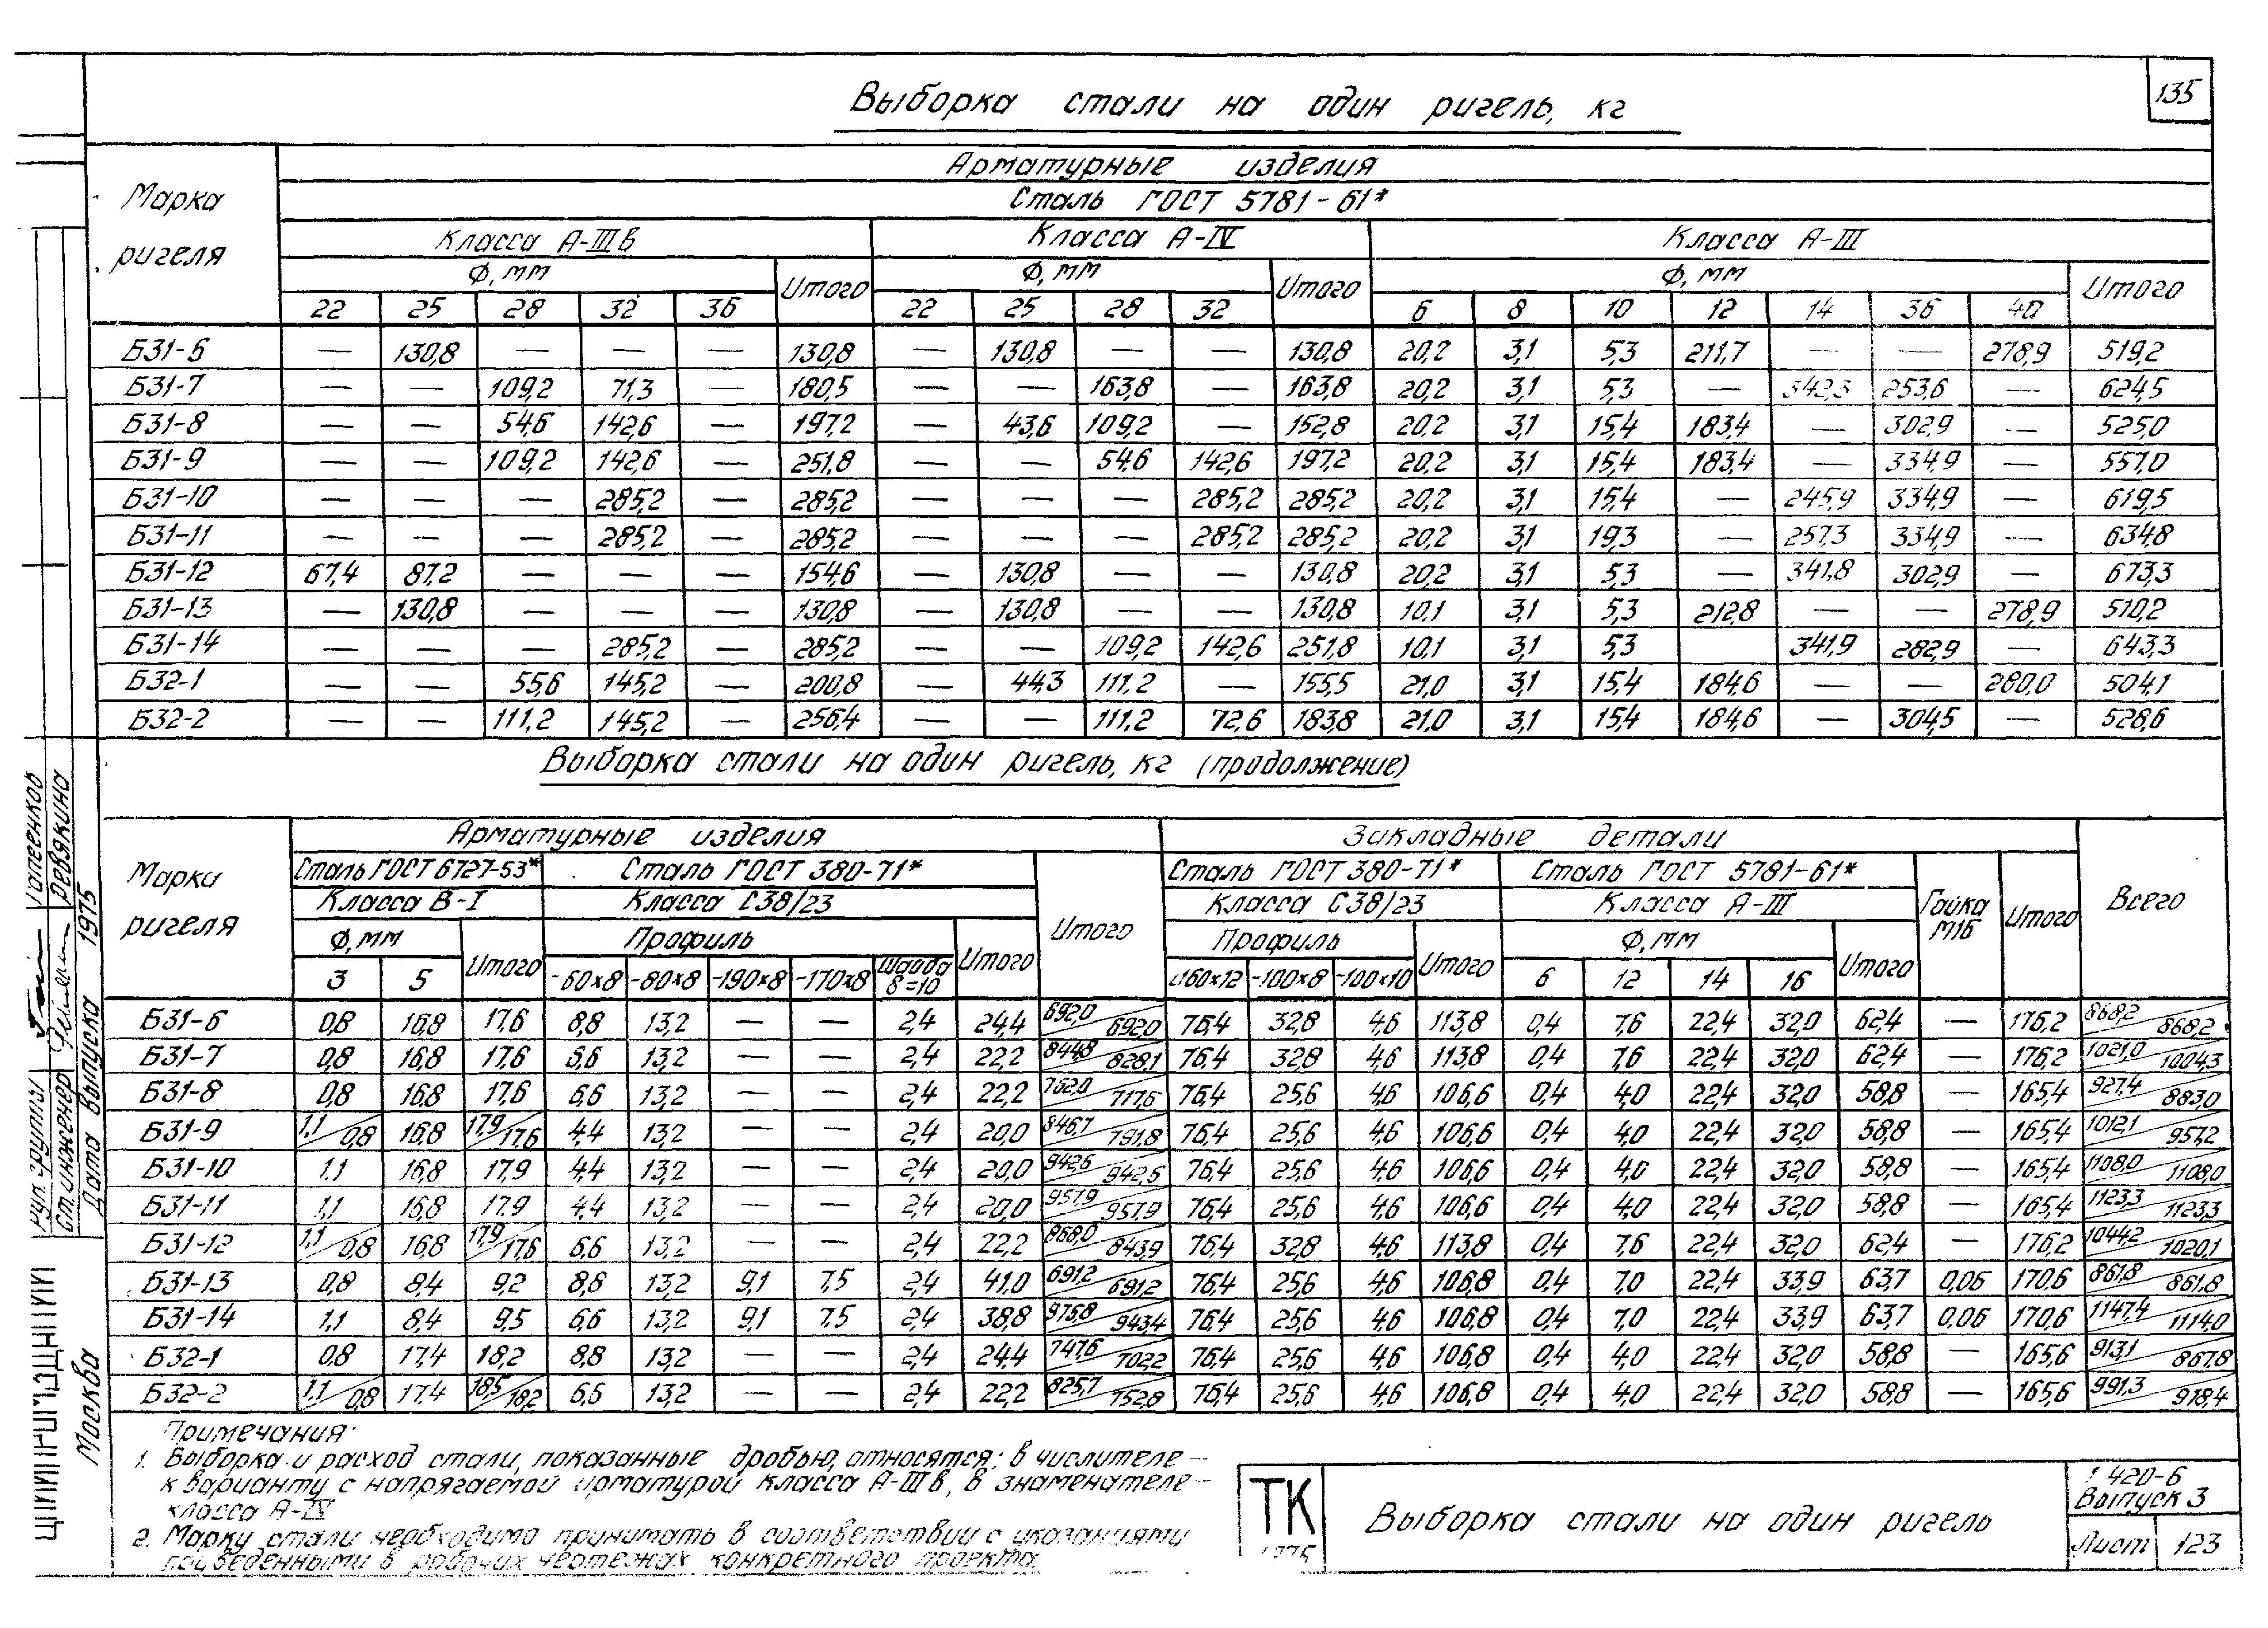 135
Выборка стали на один ригель, кг
Марка ригеля
Арматурные изделия
Сталь ГОСТ 5781-61*
Класса А-IIIв Класса А-IV Класса А-III
Ф, мм Итого Ф, мм Итого Ф, мм Итого
22 25 28 32 36 22 25 28 32 6 8 10 12 14 36 40
Б31-6 — 130,8 — — — 130,8 — 130,8 — — 130,8 20,2 3,1 5,3 211,7 — — 278,9 519,2
Б31-7 — — 109,2 71,3 — 180,5 — — 163,8 — 163,8 20,2 3,1 5,3 — 342,3 253,6 — 624,5
Б31-8 — — 54,6 142,6 — 197,2 — 43,6 109,2 — 152,8 20,2 3,1 15,4 183,4 — 302,9 — 525,0
Б31-9 — — 109,2 142,6 — 251,8 — — 54,6 142,6 197,2 20,2 3,1 15,4 183,4 — 334,9 — 557,0
Б31-10 — — — 285,2 — 285,2 — — — 285,2 285,2 20,2 3,1 15,4 — 245,9 334,9 — 619,5
Б31-11 — — — 285,2 — 285,2 — — — 285,2 285,2 20,2 3,1 19,3 — 257,3 334,9 — 634,8
Б31-12 67,4 87,2 — — — 154,6 — 130,8 — — 130,8 20,2 3,1 5,3 — 341,8 302,9 — 673,3
Б31-13 — 130,8 — — — 130,8 — 130,8 — — 130,8 10,1 3,1 5,3 212,8 — — 278,9 510,2
Б31-14 — — — 285,2 — 285,2 — — 109,2 142,6 251,8 10,1 3,1 5,3 341,9 282,9 — 643,3
Б32-1 — — 55,6 145,2 — 200,8 — 44,3 111,2 — 155,5 21,0 3,1 15,4 184,6 — — 280,0 504,1
Б32-2 — — 111,2 145,2 — 256,4 — — 111,2 72,6 183,8 21,0 3,1 15,4 184,6 — 304,5 — 528,6
Выборка стали на один ригель, кг (продолжение)
Марка ригеля
Арматурные изделия Закладные детали Всего
Сталь ГОСТ 6727-53* Сталь ГОСТ 380-71* Итого Сталь ГОСТ 380-71* Сталь ГОСТ 5781-61* Гайка М16 Итого
Класса В-I Класса С38/23 Класса С38/23 Класса А-III
Ф, мм Итого Профиль Итого Профиль Итого Ф, мм Итого
3 5 -60×8 -80×8 -190×8 -170×8 Шайба δ=10 ∟160×12 -100×8 -100×10 6 12 14 16
Б31-6 0,8 16,8 17,6 8,8 13,2 — — 2,4 24,4 692,0/692,0 76,4 32,8 4,6 113,8 0,4 7,6 22,4 32,0 62,4 — 176,2 868,2/868,2
Б31-7 0,8 16,8 17,6 6,6 13,2 — — 2,4 22,2 844,8/828,1 76,4 32,8 4,6 113,8 0,4 7,6 22,4 32,0 62,4 — 176,2 1021,0/1004,3
Б31-8 0,8 16,8 17,6 6,6 13,2 — — 2,4 22,2 762,0/717,6 76,4 25,6 4,6 106,6 0,4 4,0 22,4 32,0 58,8 — 165,4 927,4/883,0
Б31-9 1,1/0,8 16,8 17,9/17,6 4,4 13,2 — — 2,4 20,0 846,7/791,8 76,4 25,6 4,6 106,6 0,4 4,0 22,4 32,0 58,8 — 165,4 1012,1/957,2
Б31-10 1,1 16,8 17,9 4,4 13,2 — — 2,4 20,0 942,6/942,6 76,4 25,6 4,6 106,6 0,4 4,0 22,4 32,0 58,8 — 165,4 1108,0/1108,0
Б31-11 1,1 16,8 17,9 4,4 13,2 — — 2,4 20,0 957,9/957,9 76,4 25,6 4,6 106,6 0,4 4,0 22,4 32,0 58,8 — 165,4 1123,3/1123,3
Б31-12 1,1/0,8 16,8 17,9/17,6 6,6 13,2 — — 2,4 22,2 868,0/843,9 76,4 32,8 4,6 113,8 0,4 7,6 22,4 32,0 62,4 — 176,2 1044,2/1020,1
Б31-13 0,8 8,4 9,2 8,8 13,2 9,1 7,5 2,4 41,0 691,2/691,2 76,4 25,6 4,6 106,8 0,4 7,0 22,4 33,9 63,7 0,06 170,6 861,8/861,8
Б31-14 1,1 8,4 9,5 6,6 13,2 9,1 7,5 2,4 38,8 976,8/943,4 76,4 25,6 4,6 106,8 0,4 7,0 22,4 33,9 63,7 0,06 170,6 1147,4/1114,0
Б32-1 0,8 17,4 18,2 8,8 13,2 — — 2,4 24,4 747,6/702,2 76,4 25,6 4,6 106,8 0,4 4,0 22,4 32,0 58,8 — 165,6 913,1/867,8
Б32-2 1,1/0,8 17,4 18,5/18,2 6,6 13,2 — — 2,4 22,2 825,7/752,8 76,4 25,6 4,6 106,8 0,4 4,0 22,4 32,0 58,8 — 165,6 991,3/918,4
Примечания:
1. Выборка и расход стали, показанные дробью, относятся: в числителе —
к варианту с напрягаемой арматурой класса А-IIIв, в знаменателе —
класса А-IV
2. Марку стали необходимо принимать в соответствии с указаниями
приведенными в рабочих чертежах конкретного проекта.
ТК
1975
Выборка стали на один ригель
1.420-6
Выпуск 3
Лист 123
Рук. группы
Ст. инженер Ревякина
Дата выпуска 1975
Москва